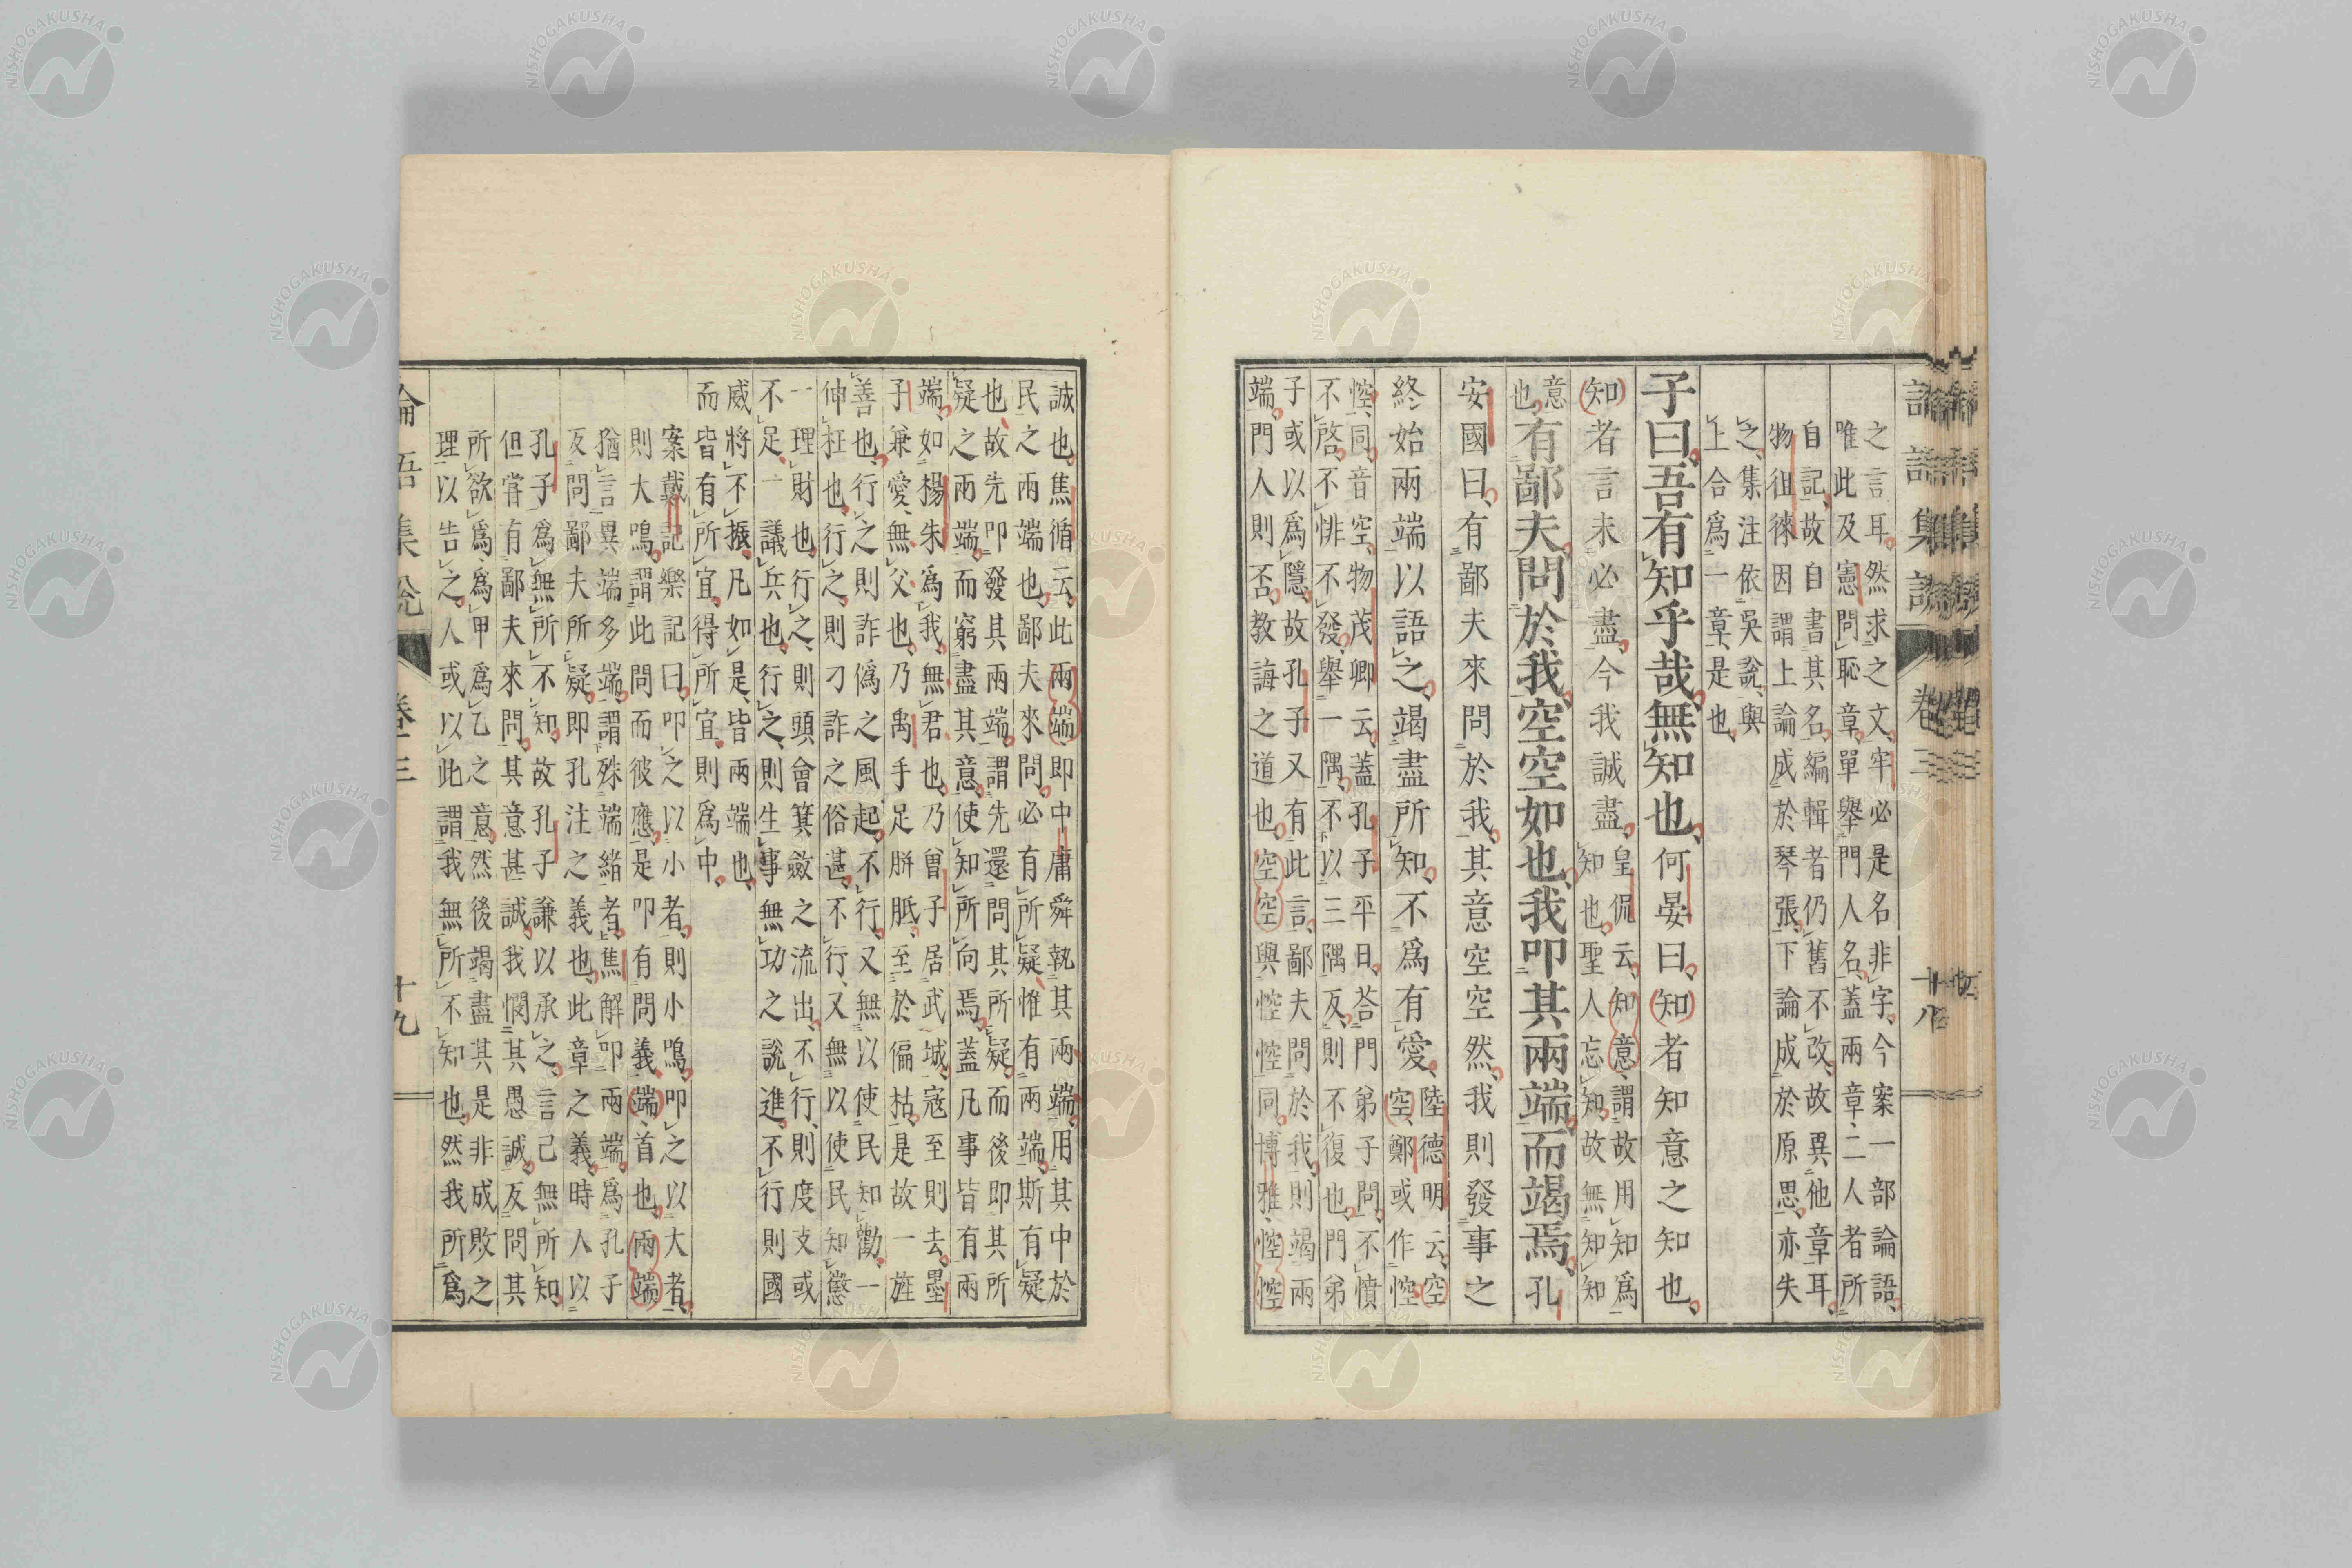 之言耳然求之文牢必是名非字今案一部論語
唯此及憲問恥章單舉門人名蓋兩章二人者所
自記故自書其名編輯者仍舊不改故異他章耳
物徂徠因謂上論成於琴張下論成於原思亦失
之集注依吳說與
上合爲一章是也
子曰吾有知乎哉無知也何晏曰知者知意之知也
知者言未必盡今我誠盡皇侃云知意謂故用知爲
知也聖人忘知故無知知
意
也有鄙夫問於我空空如也我叩其兩端而竭焉孔
安國曰有鄙夫來問於我其意空空然我則發事之
終始兩端以語之竭盡所知不爲有愛陸德明云空
空鄭或作悾
悾同音空物茂卿云蓋孔子平日荅門弟子問不憤
不啓不悱不發舉一隅不以三隅反則不復也門弟
子或以爲隱故孔子又有此言鄙夫問於我則竭兩
端門人則否教誨之道也空空與悾悾同博雅悾悾
論語集說 卷三 十八
誠也焦循云此兩端即中庸舜執其兩端用其中於
民之兩端也鄙夫來問必有所疑惟有兩端斯有疑
也故先叩發其兩端謂先還問其所疑而後即其所
疑之兩端而窮盡其意使知所向焉蓋凡事皆有兩
端如楊朱爲我無君也乃曾子居武城寇至則去墨
子兼愛無父也乃禹手足胼胝至於偏枯是故一旌
善也行之則詐僞之風起不行又無以使民知勸一
伸枉也行之則刁詐之俗甚不行又無以使民知懲
一理財也行之則頭會箕斂之流出不行則度支或
不足一議兵也行之則生事無功之說進不行則國
威將不振凡如是皆兩端也
而皆有所宜得所宜則爲中
案戴記樂記曰叩之以小者則小鳴叩之以大者
則大鳴謂此問而彼應是叩有問義端首也兩端
猶言異端多端謂殊端緒者焦解叩兩端爲孔子
反問鄙夫所疑即孔注之義也此章之義時人以
孔子爲無所不知故孔子謙以承之言己無所知
但嘗有鄙夫來問其意甚誠我憫其愚誠反問其
所欲爲爲甲爲乙之意然後竭盡其是非成敗之
理以告之人或以此謂我無所不知也然我所爲
論語集說 卷三 十九
NISHOGAKUSHA